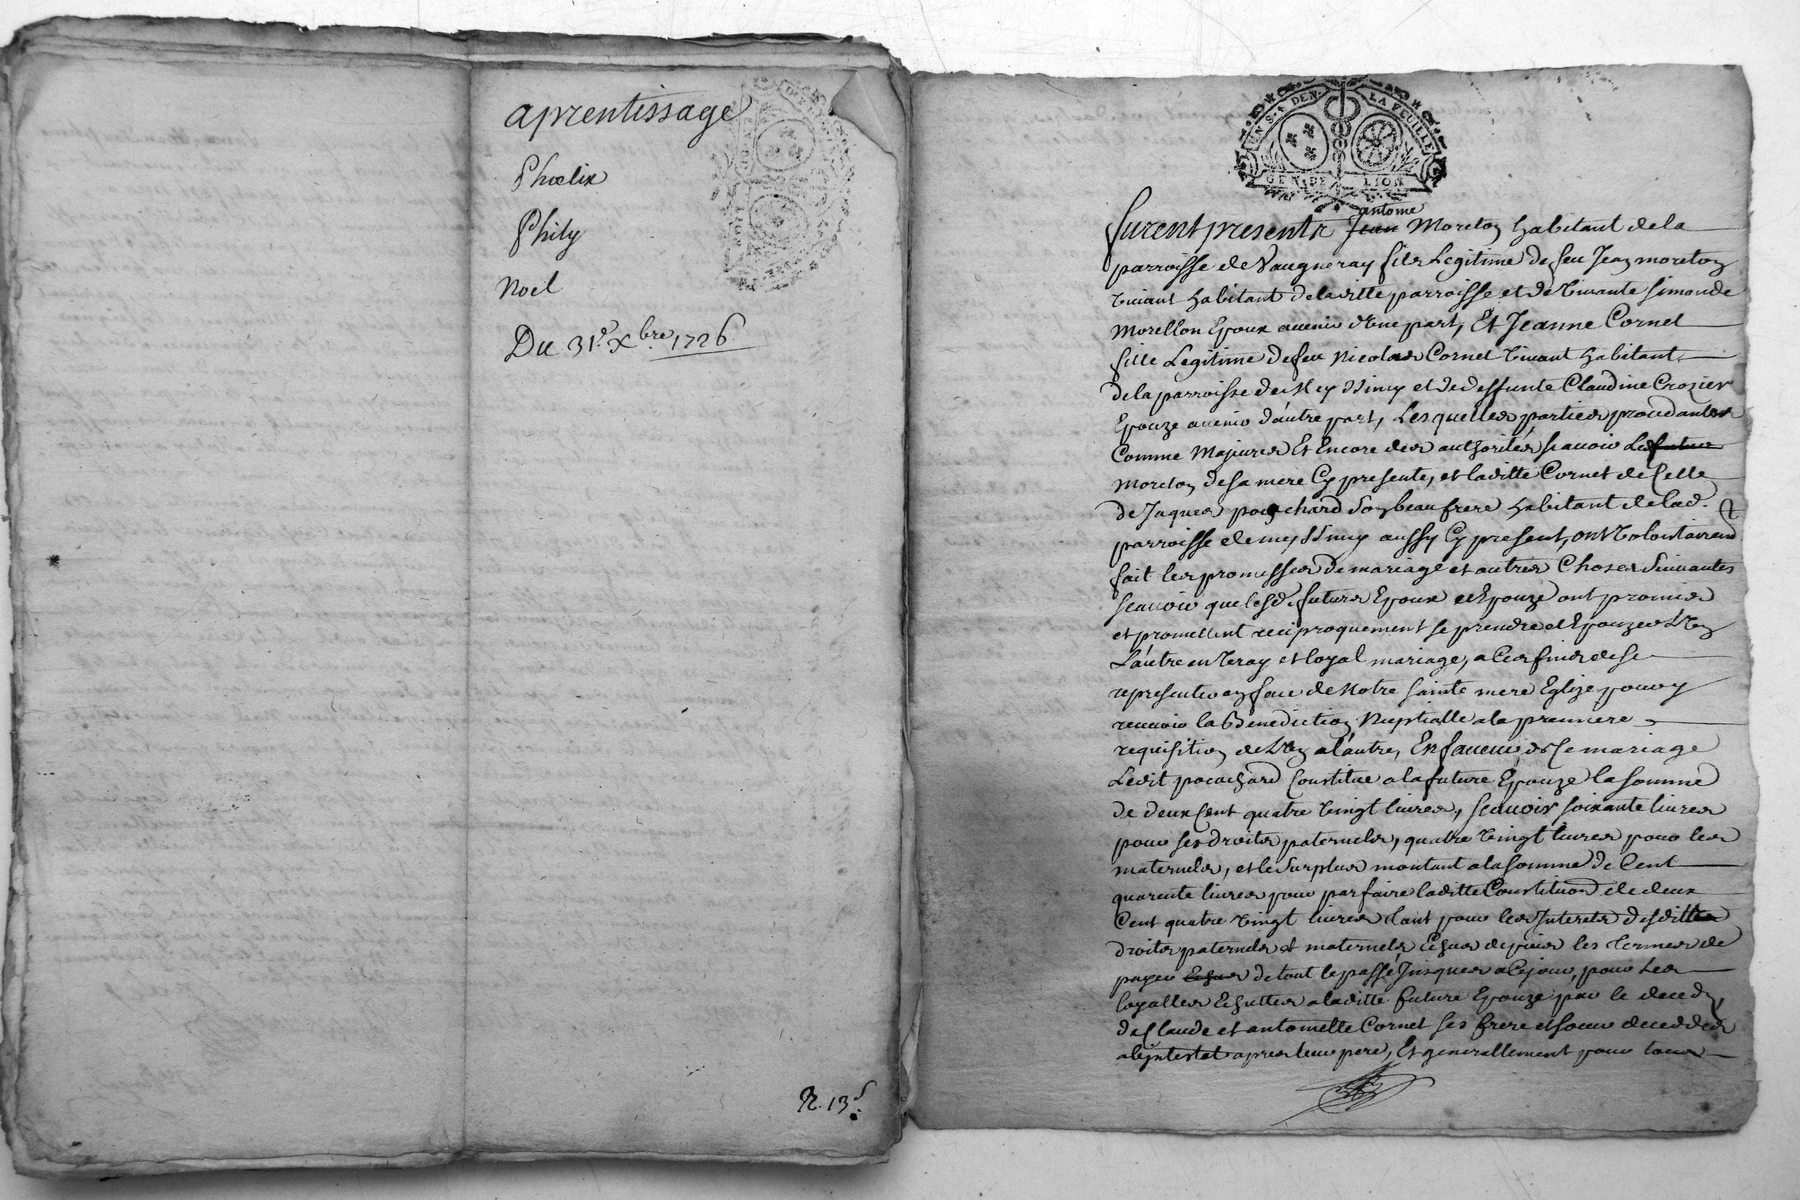 aprentissage
Phoelix
Phily
Noel
Du 31e. Xbre. 1726
R. 13s.
UN S. 4 DEN. LA FEUILLE
GEN. DE LION
antoine
furent presents Jean Moreton habitant de la
parroisse de Vaugneray fils Legitime de feu Jean moreton
vivant habitant de laditte parroisse et de vivante simonde
Morellon Epoux avenir d'une part, Et Jeanne Cornet
fille Legitime de feu Nicolas Cornet vivant habitant
de la parroisse de Meyssimy et de deffunte Claudine Crozier
Epouze avenir d'autre part, Lesquelles parties procedantes
Comme Majeures Et Encore des authorités scavoir Le futur
Moreton de sa mere Cy presente, et laditte Cornet de Celle
de Jaques pouchard son beaufrere habitant de lad.
parroisse de meyssimy aussy Cy present, ont volontairemt
fait les promesses de mariage et autres Choses suivantes
scavoir que lesd. futurs Epoux et Epouze ont promis
et promettent reciproquement se prendre et Epouzer L'un
L'autre en vray et loyal mariage, a Ces fins de se
representer en face de Notre sainte mere Eglize pour y
recevoir la Benediction Nuptialle a la premiere
requisition de L'un a l'autre, En faveur de Ce mariage
Ledit pocachard Constitue a la future Epouze la somme
de deux Cent quatre vingt livres, scavoir soixante livres
pour ses droits paternels, quatre vingt livres pour les
maternels, et le surplus montant a la somme de Cent
quarente livres pour parfaire laditte Constitution de deux
Cent quatre vingt livres tant pour les Interets desdittes
droits paternels et maternels Echus depuis les termes de
payer Echus de tout le passé Jusques a Ce jour, pour Les
loyalles Echuttes a laditte future Epouze par le deced
de Claude et antoinette Cornet ses frere et soeur decedes
abjntestat apres leur pere, Et generallement pour tous